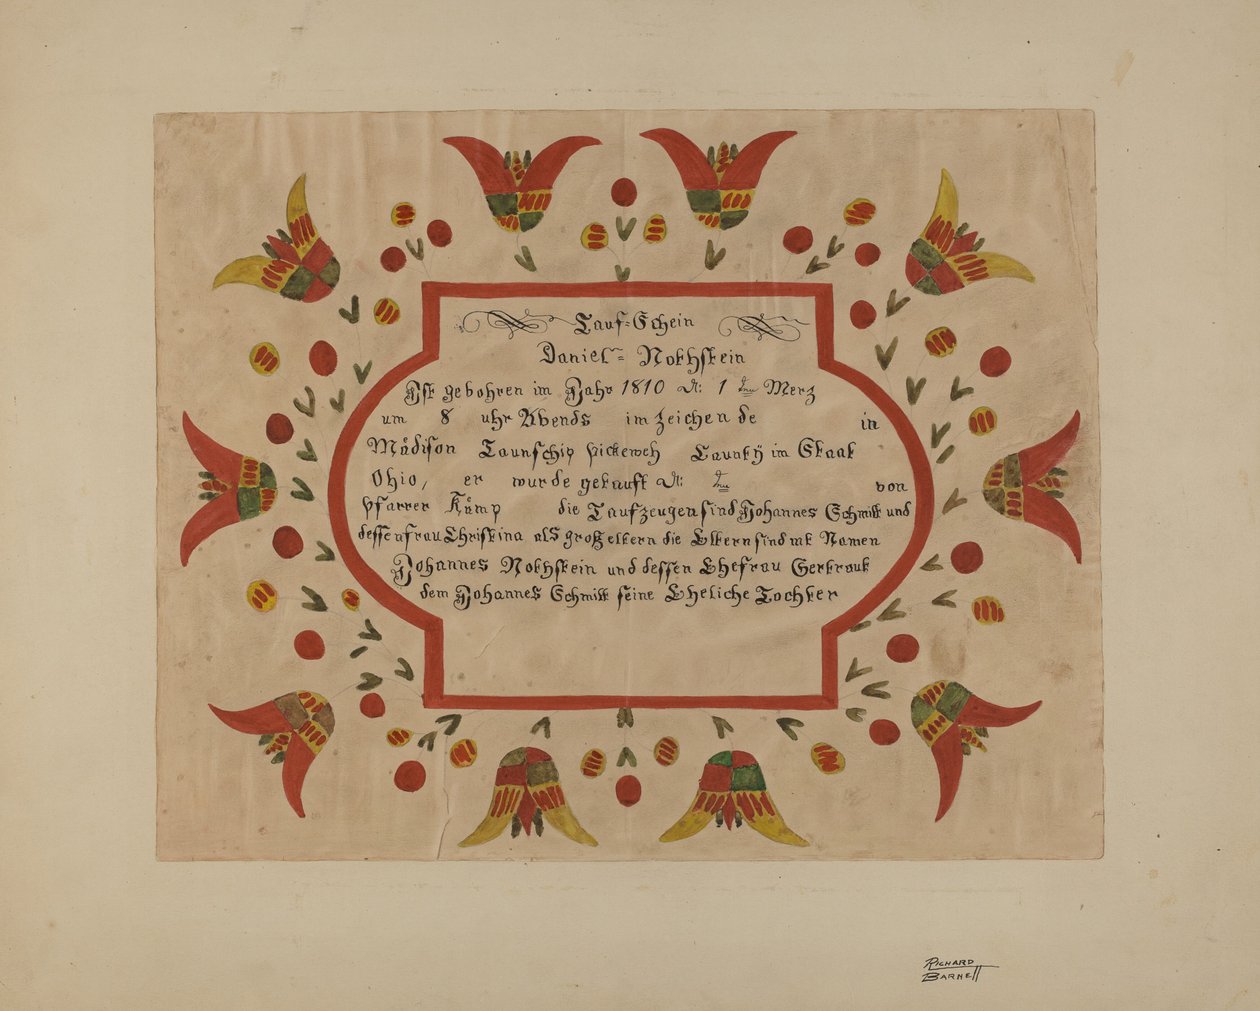 Tauf=Schein
Daniel= Nothstein
Ist gebohren im Jahr 1810 d: 1 tnu Merz
um 8 uhr Abends im zeichen de in
Mådison Taunschip pickeweh Caunty im Staat
Ohio, er wurde getauft d: tnu von
Pfarrer Kåmp die Taufzeugen sind Johannes Schmitt und
dessen frau Christina als großeltern die Eltern sind mt Namen
Johannes Nothstein und dessen Ehefrau Gertraut
dem Johannes Schmitt seine Eheliche Tochter
RICHARD
BARNETT